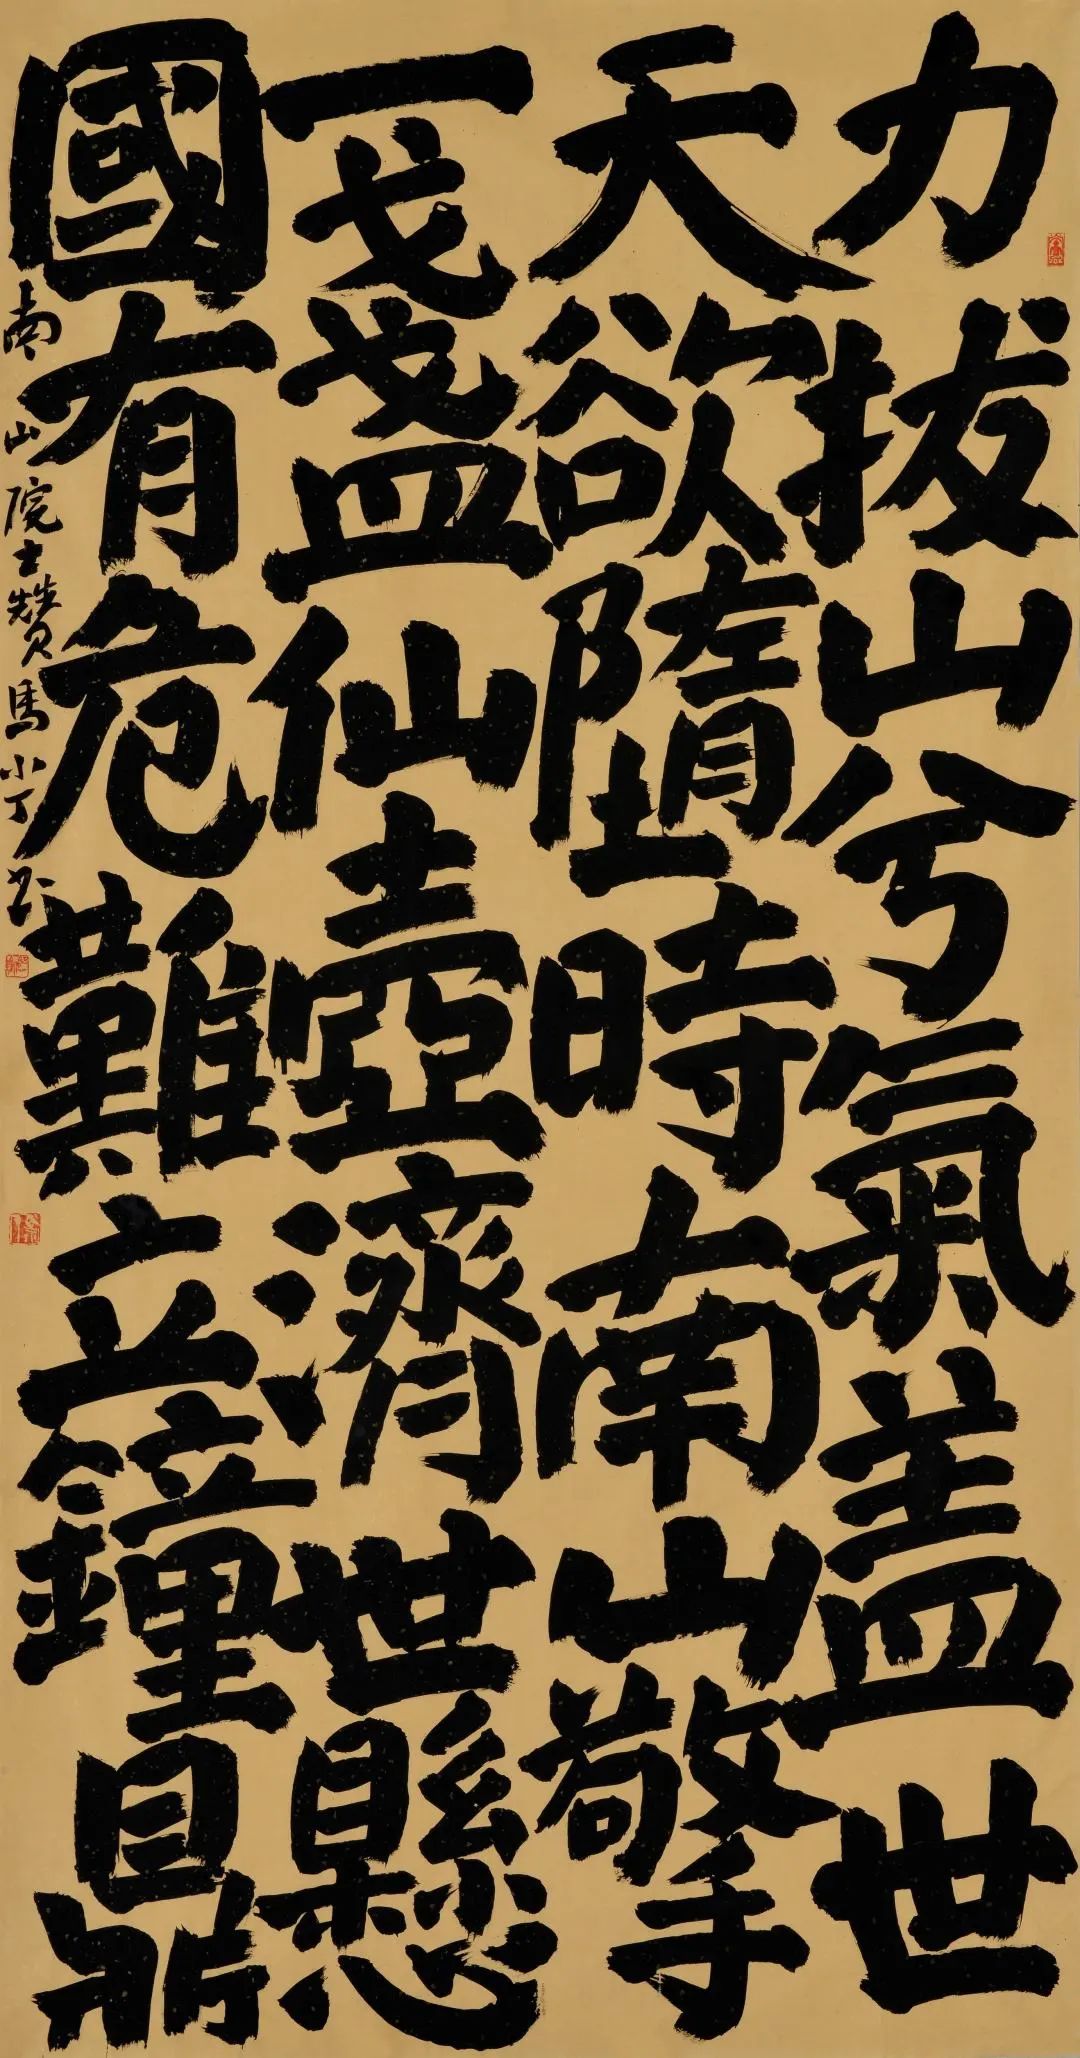 力拔山兮氣盖世
天欲墮時南山擎
一盞仙壺濟世懸
國有危難立鐘鼎
南山院士赞馬小丁书